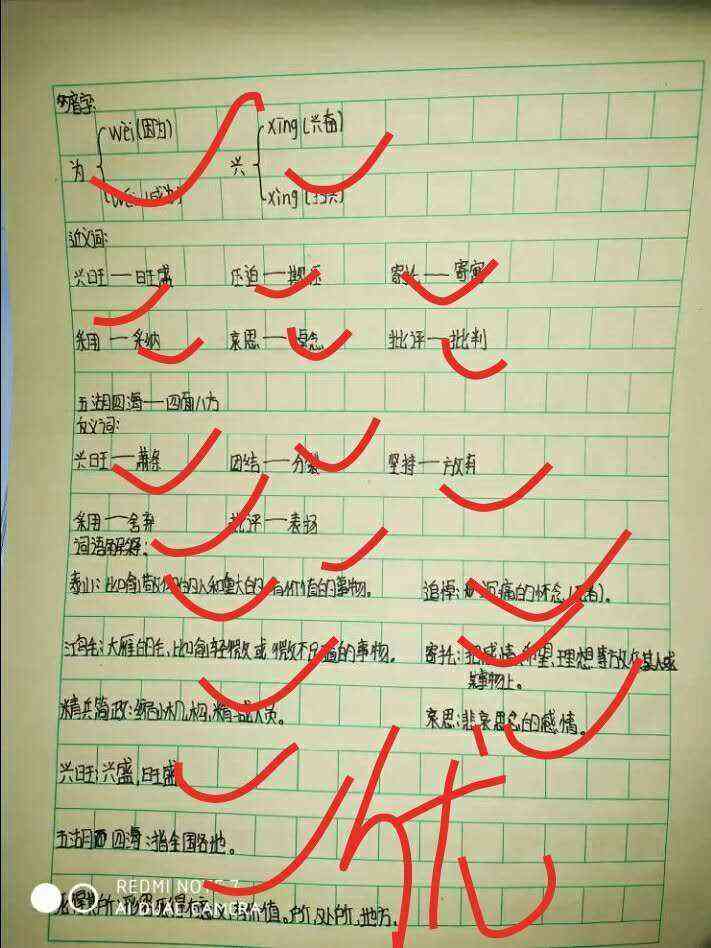 多音字:
wèi(因为) xīng(兴奋)
为 兴
wéi(成为) xìng(
近义词:
兴旺—旺盛 压迫—欺压 寄托—寄寓
采用—采纳 哀思—念 批评—批判
五湖四海—四面八方
反义词:
兴旺—萧条 团结—分裂 坚持—放弃
采用—舍弃 批评—表扬
词语解释:
泰山:比喻敬仰的人和重大的有价值的事物。 追悼:沉痛的怀念(死者)。
鸿毛:大雁的毛,比喻轻微或微不足道的事物。 寄托:把感情、希望、理想等放在某人或
某事物上。
精兵简政:缩小机构,精 人员。 哀思:悲哀思念的感情。
兴旺:兴盛,旺盛
五湖四海:指全国各地。
死得其所: 价值。所,处所,地方。
优
REDMI NOTE 7
AI DUAL CAMERA